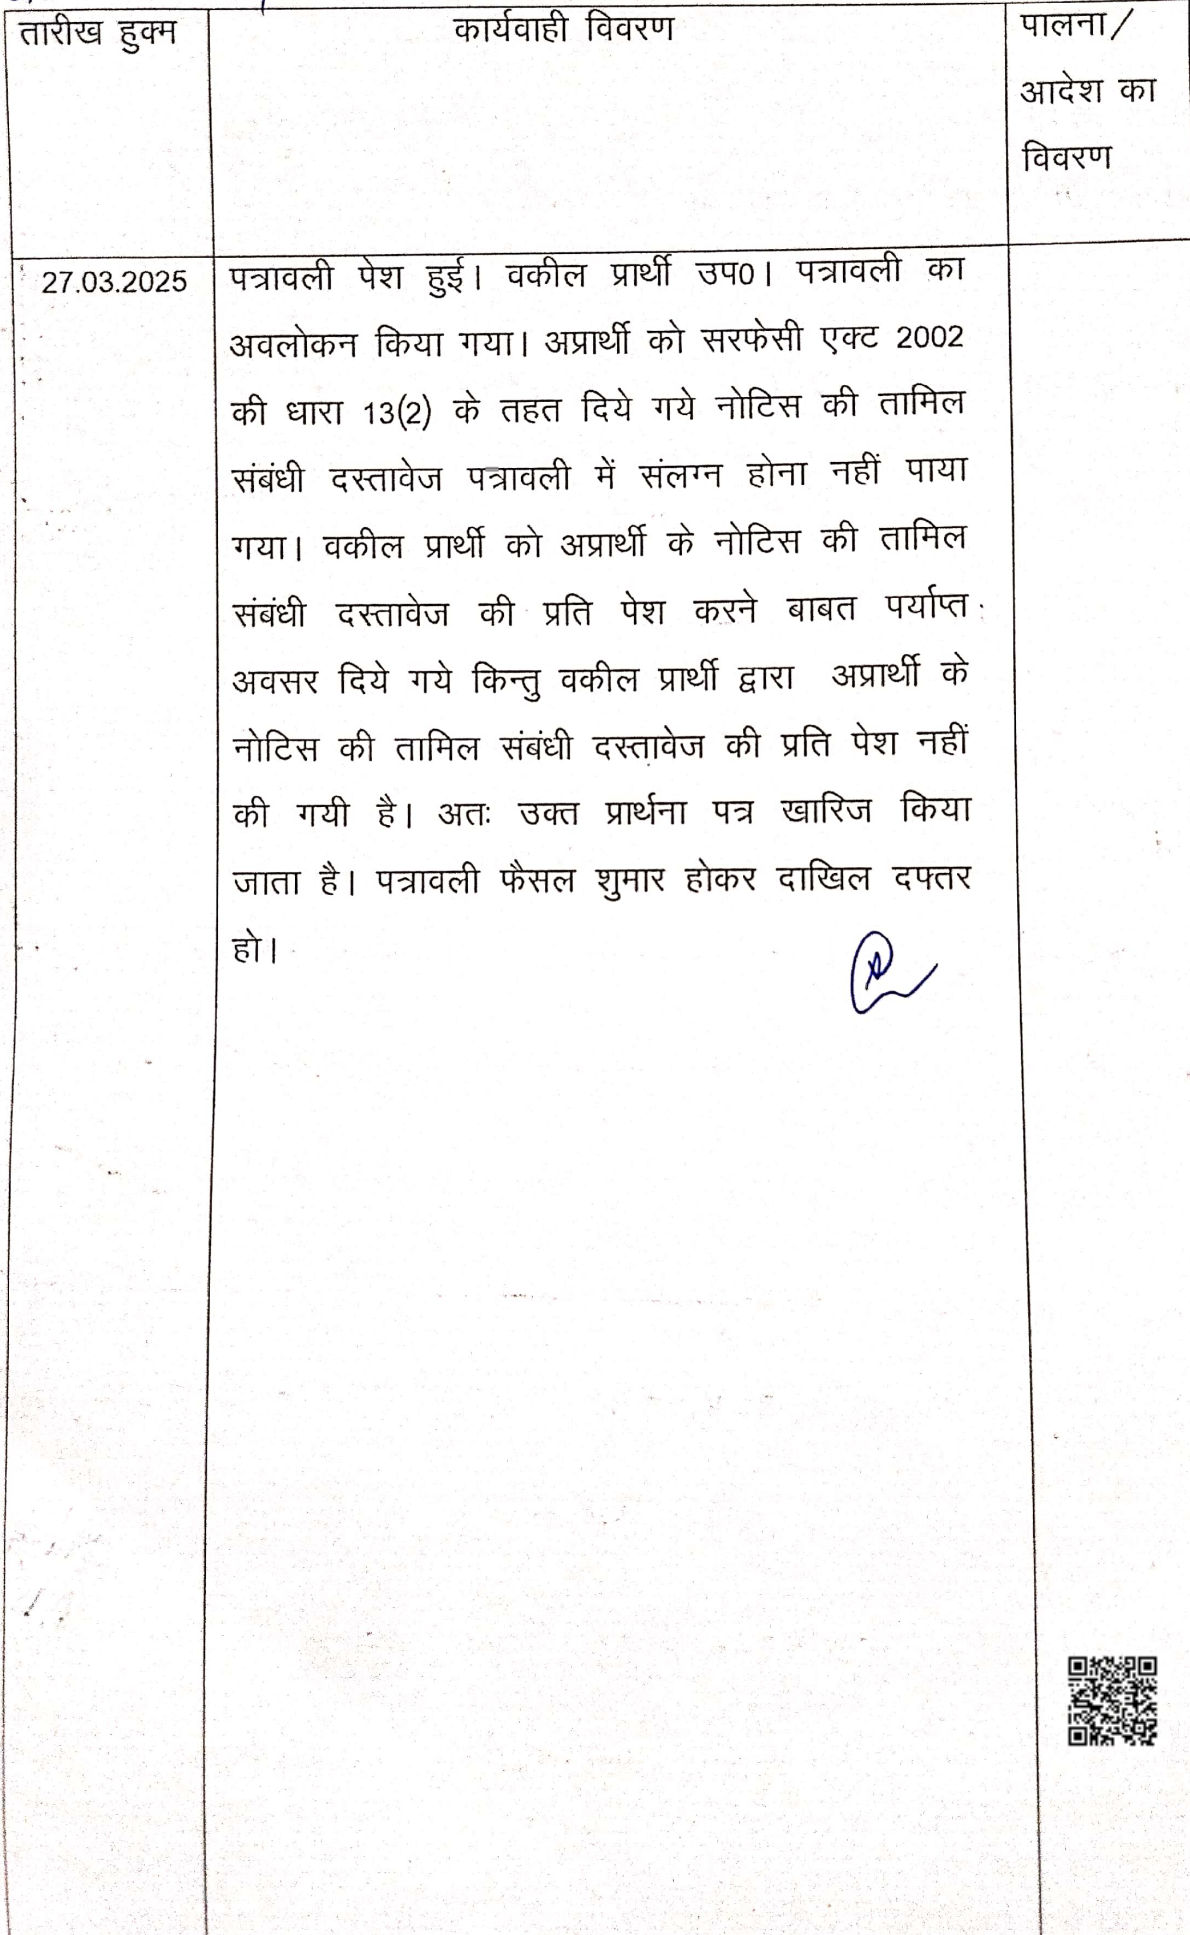 तारीख हुक्म
कार्यवाही विवरण
पालना/
आदेश का
विवरण
27.03.2025
पत्रावली पेश हुई। वकील प्रार्थी उप0। पत्रावली का
अवलोकन किया गया। अप्रार्थी को सरफेसी एक्ट 2002
की धारा 13(2) के तहत दिये गये नोटिस की तामिल
संबंधी दस्तावेज पत्रावली में संलग्न होना नहीं पाया
गया। वकील प्रार्थी को अप्रार्थी के नोटिस की तामिल
संबंधी दस्तावेज की प्रति पेश करने बाबत पर्याप्त
अवसर दिये गये किन्तु वकील प्रार्थी द्वारा अप्रार्थी के
नोटिस की तामिल संबंधी दस्तावेज की प्रति पेश नहीं
की गयी है। अतः उक्त प्रार्थना पत्र खारिज किया
जाता है। पत्रावली फैसल शुमार होकर दाखिल दफ्तर
हो।